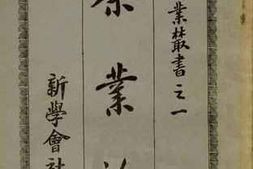 業叢書之一
業
新學會社